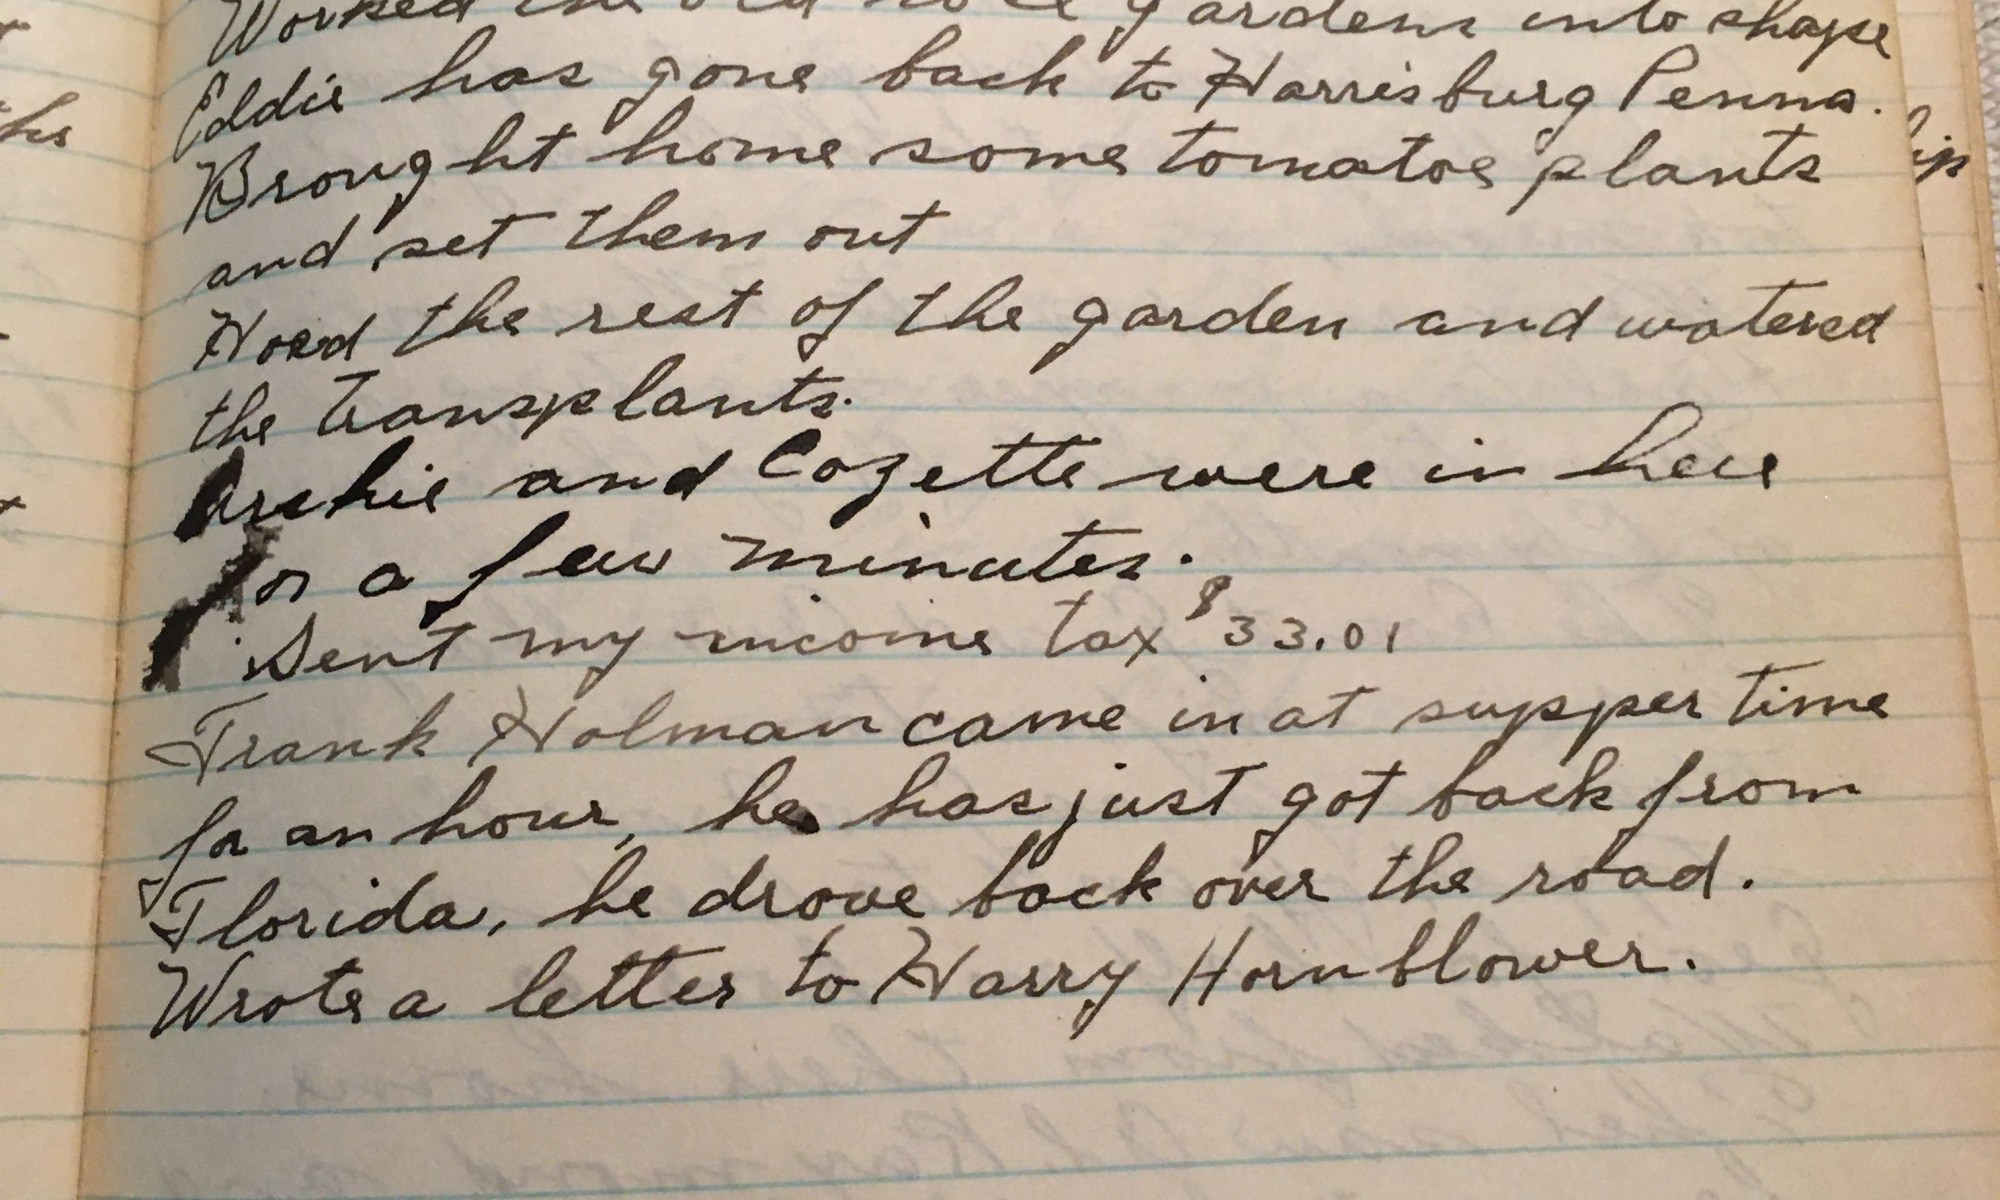 Worked the old rose gardens into shape
Eddie has gone back to Harrisburg Penna.
Brought home some tomatoe plants
and set them out
Hoed the rest of the garden and watered
the transplants.
Archie and Cozette were in here
for a few minutes.
Sent my income tax $33.01
Frank Holman came in at supper time
for an hour, he has just got back from
Florida, he drove back over the road.
Wrote a letter to Harry Hornblower.